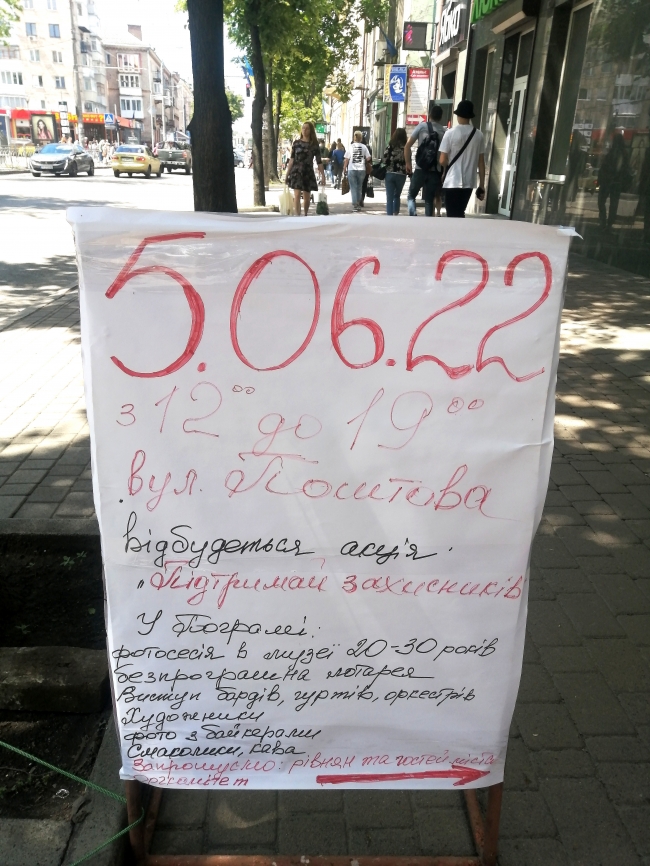 5.06.22
з 12⁰⁰ до 19⁰⁰
вул. Поштова
відбудеться акція
"Підтримай захисників
У Пограмі:
фотосесія в музеї 20-30 років
безпрограшна лотарея
Виступ бардів, гуртів, оркестрів
Художники
фото з байкерами
Смаколики, кава
Запрошуємо: рівнян та гостей міста
Оргкомітет